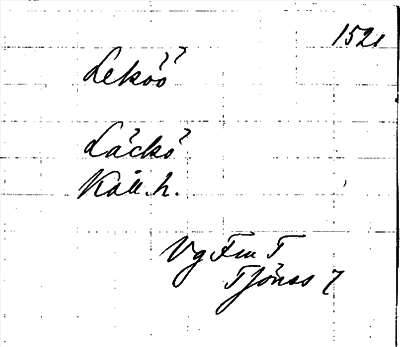 1521
Leköö
Läckö
Kåll.h.
Vg Fm T
Tjönss 7